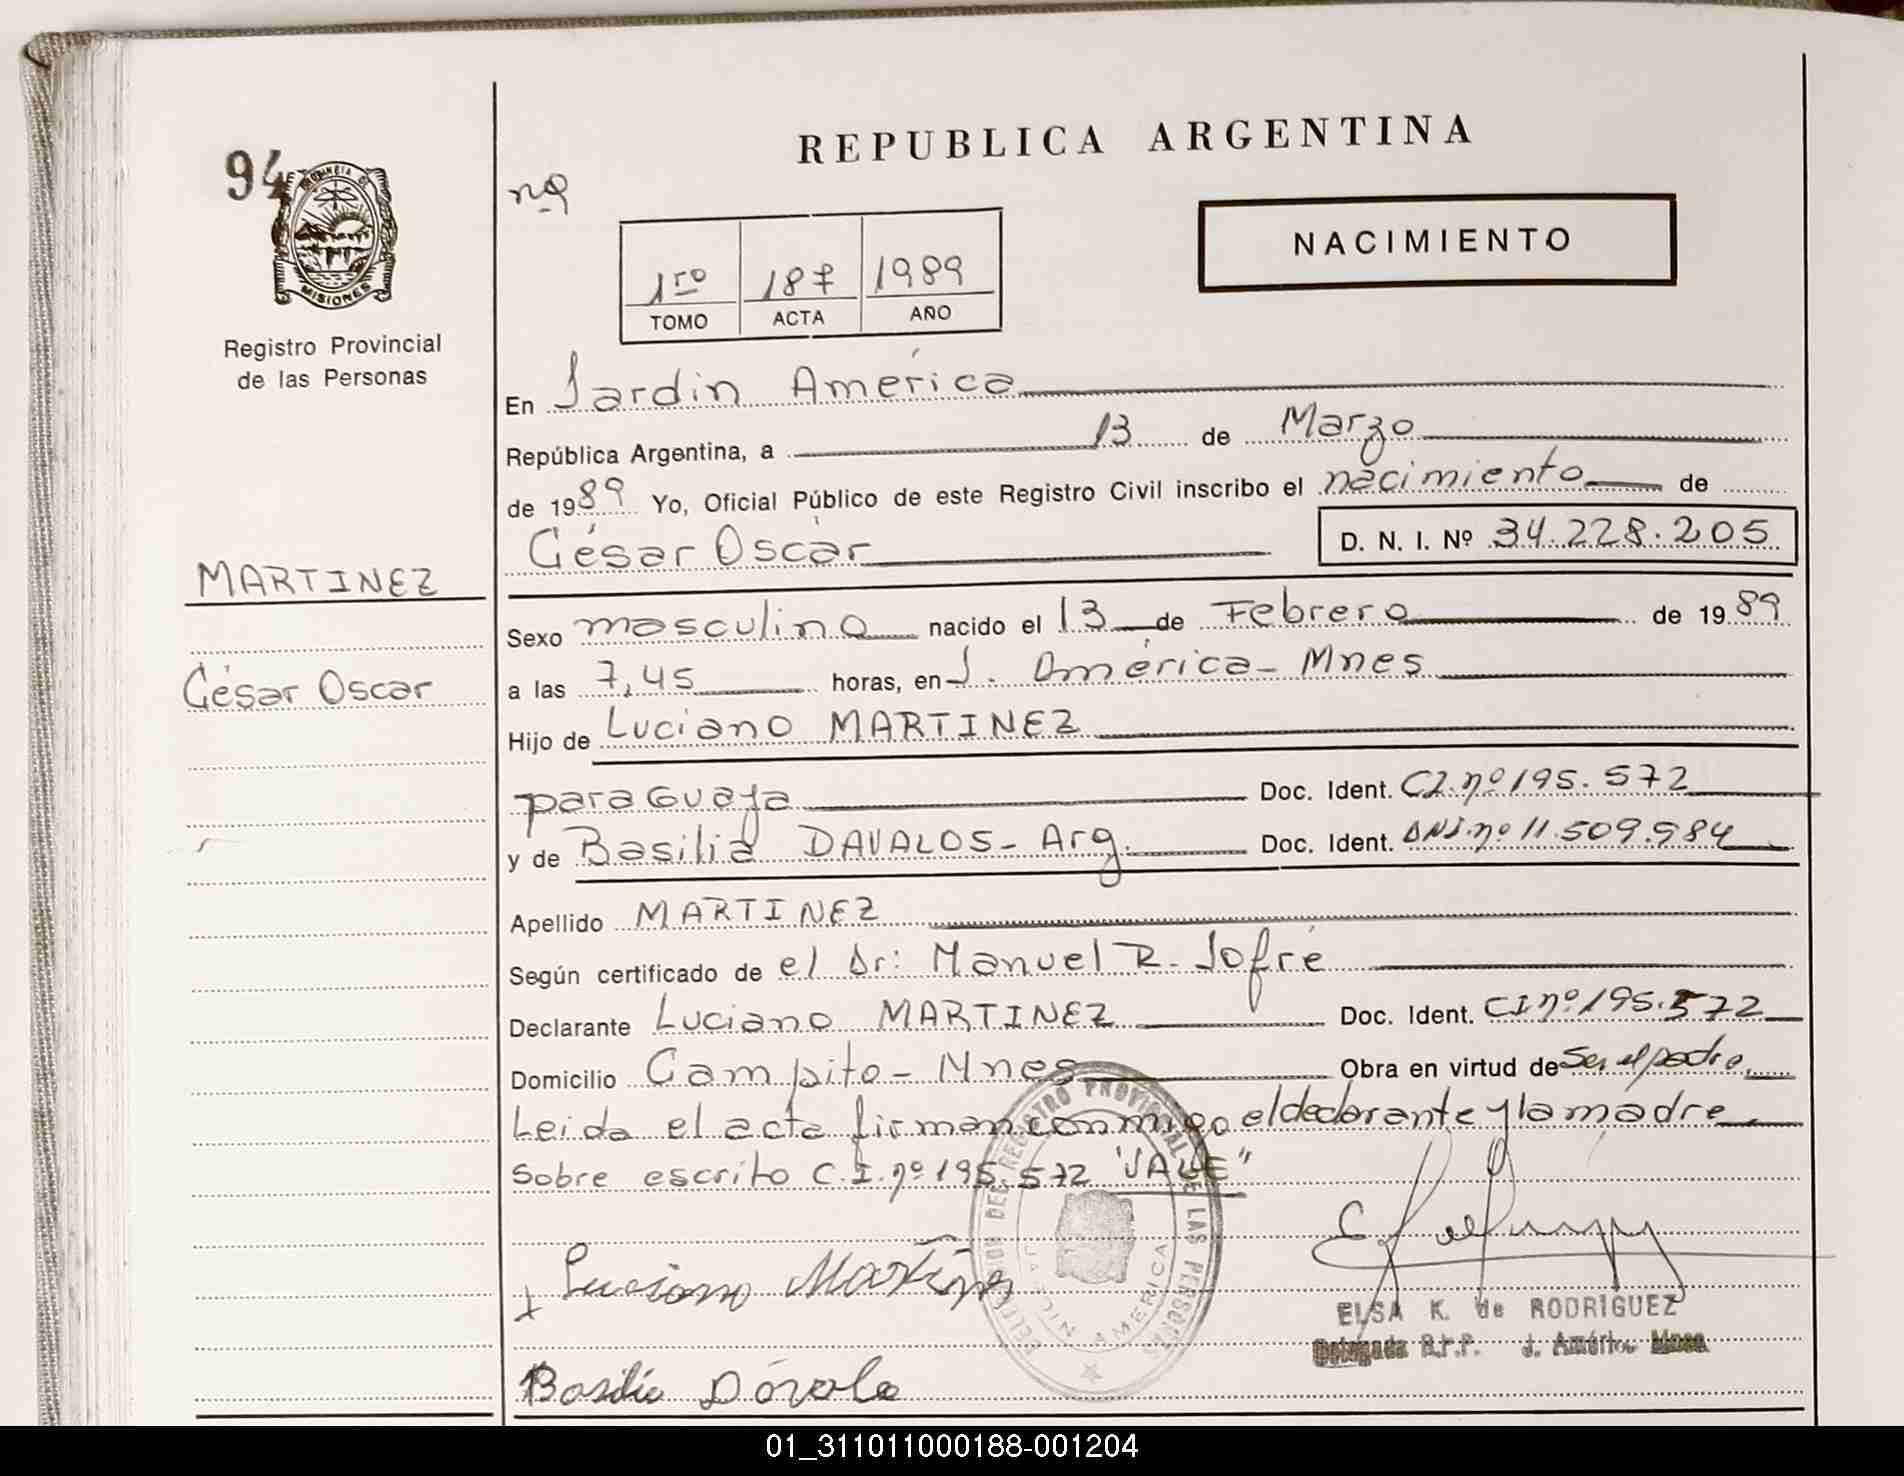 REPUBLICA ARGENTINA
94
PROVINCIA DE
MISIONES
Registro Provincial
de las Personas
nº
NACIMIENTO
1ro 187 1989
TOMO ACTA AÑO
En Jardin América
República Argentina, a 13 de Marzo
de 1989 Yo, Oficial Público de este Registro Civil inscribo el nacimiento de
César Oscar D. N. I. Nº 34.228.205
MARTINEZ
César Oscar
Sexo masculino nacido el 13 de Febrero de 1989
a las 7,45 horas, en J. América - Mnes
Hijo de Luciano MARTINEZ
paraguaya Doc. Ident. CI. nº 195.572
y de Basilia DAVALOS - Arg. Doc. Ident. DNI. nº 11.509.984
Apellido MARTINEZ
Según certificado de el Dr: Manuel R. Jofré
Declarante Luciano MARTINEZ Doc. Ident. CI nº 195.572
Domicilio Campito - Mnes Obra en virtud de Ser el padre,
Leida el acta firman conmigo el declarante y la madre
Sobre escrito C.I. nº 195.572 "VALE"
DEL REGISTRO PROVINCIAL DE LAS PERSONAS
JARDIN AMERICA
Luciano Martinez
ELSA K. de RODRIGUEZ
Delegada R.P.P. J. América Mnes
Basilia Dávalo
01_311011000188-001204